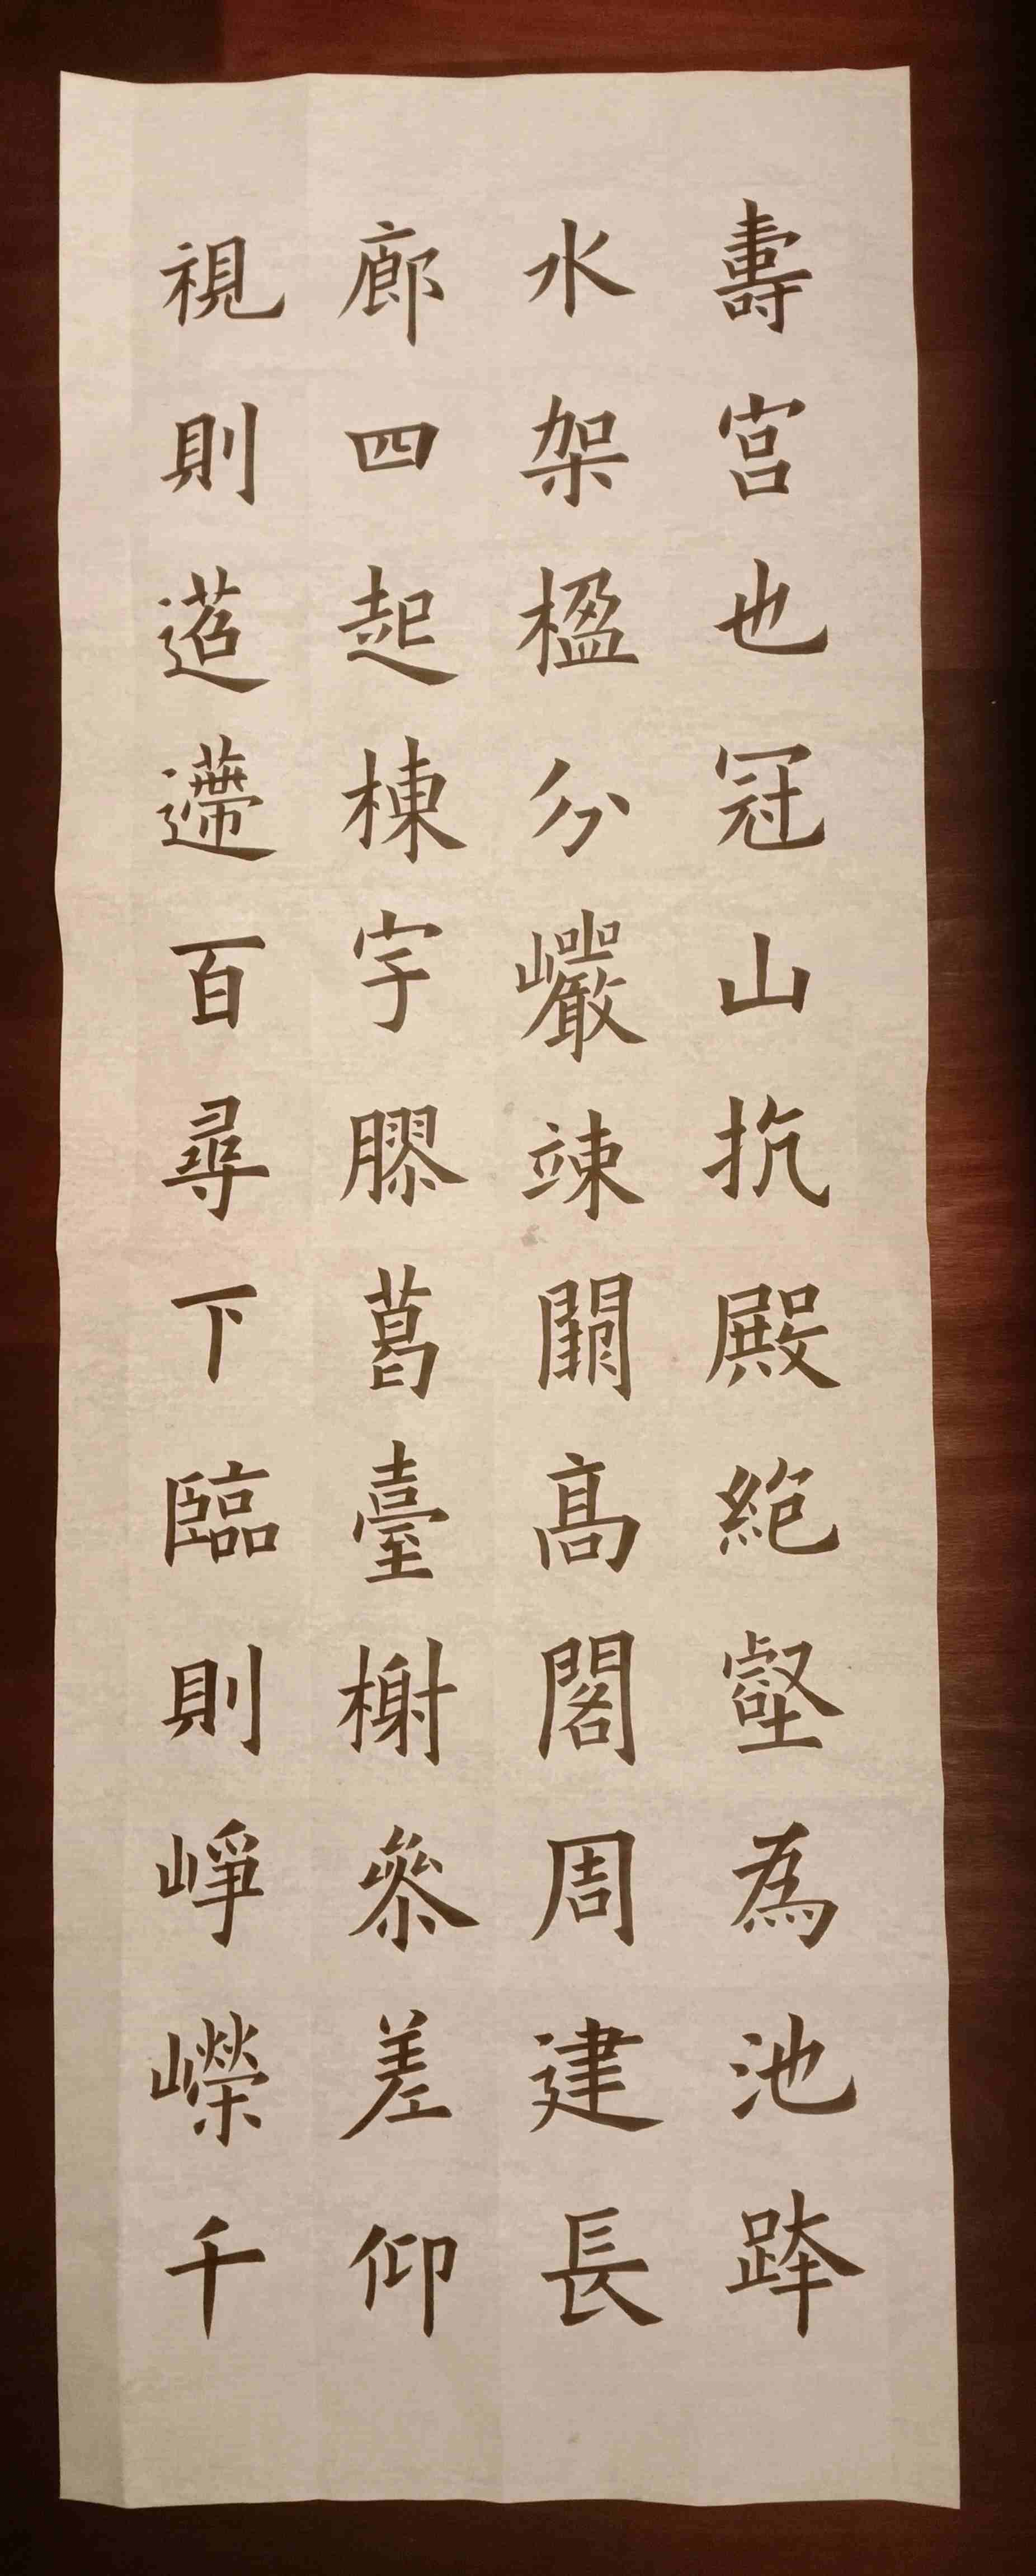 壽宮也冠山抗殿絕壑為池跨
水架楹分巖竦闕高閣周建長
廊四起棟宇膠葛臺榭參差仰
視則迢遰百尋下臨則崢嶸千